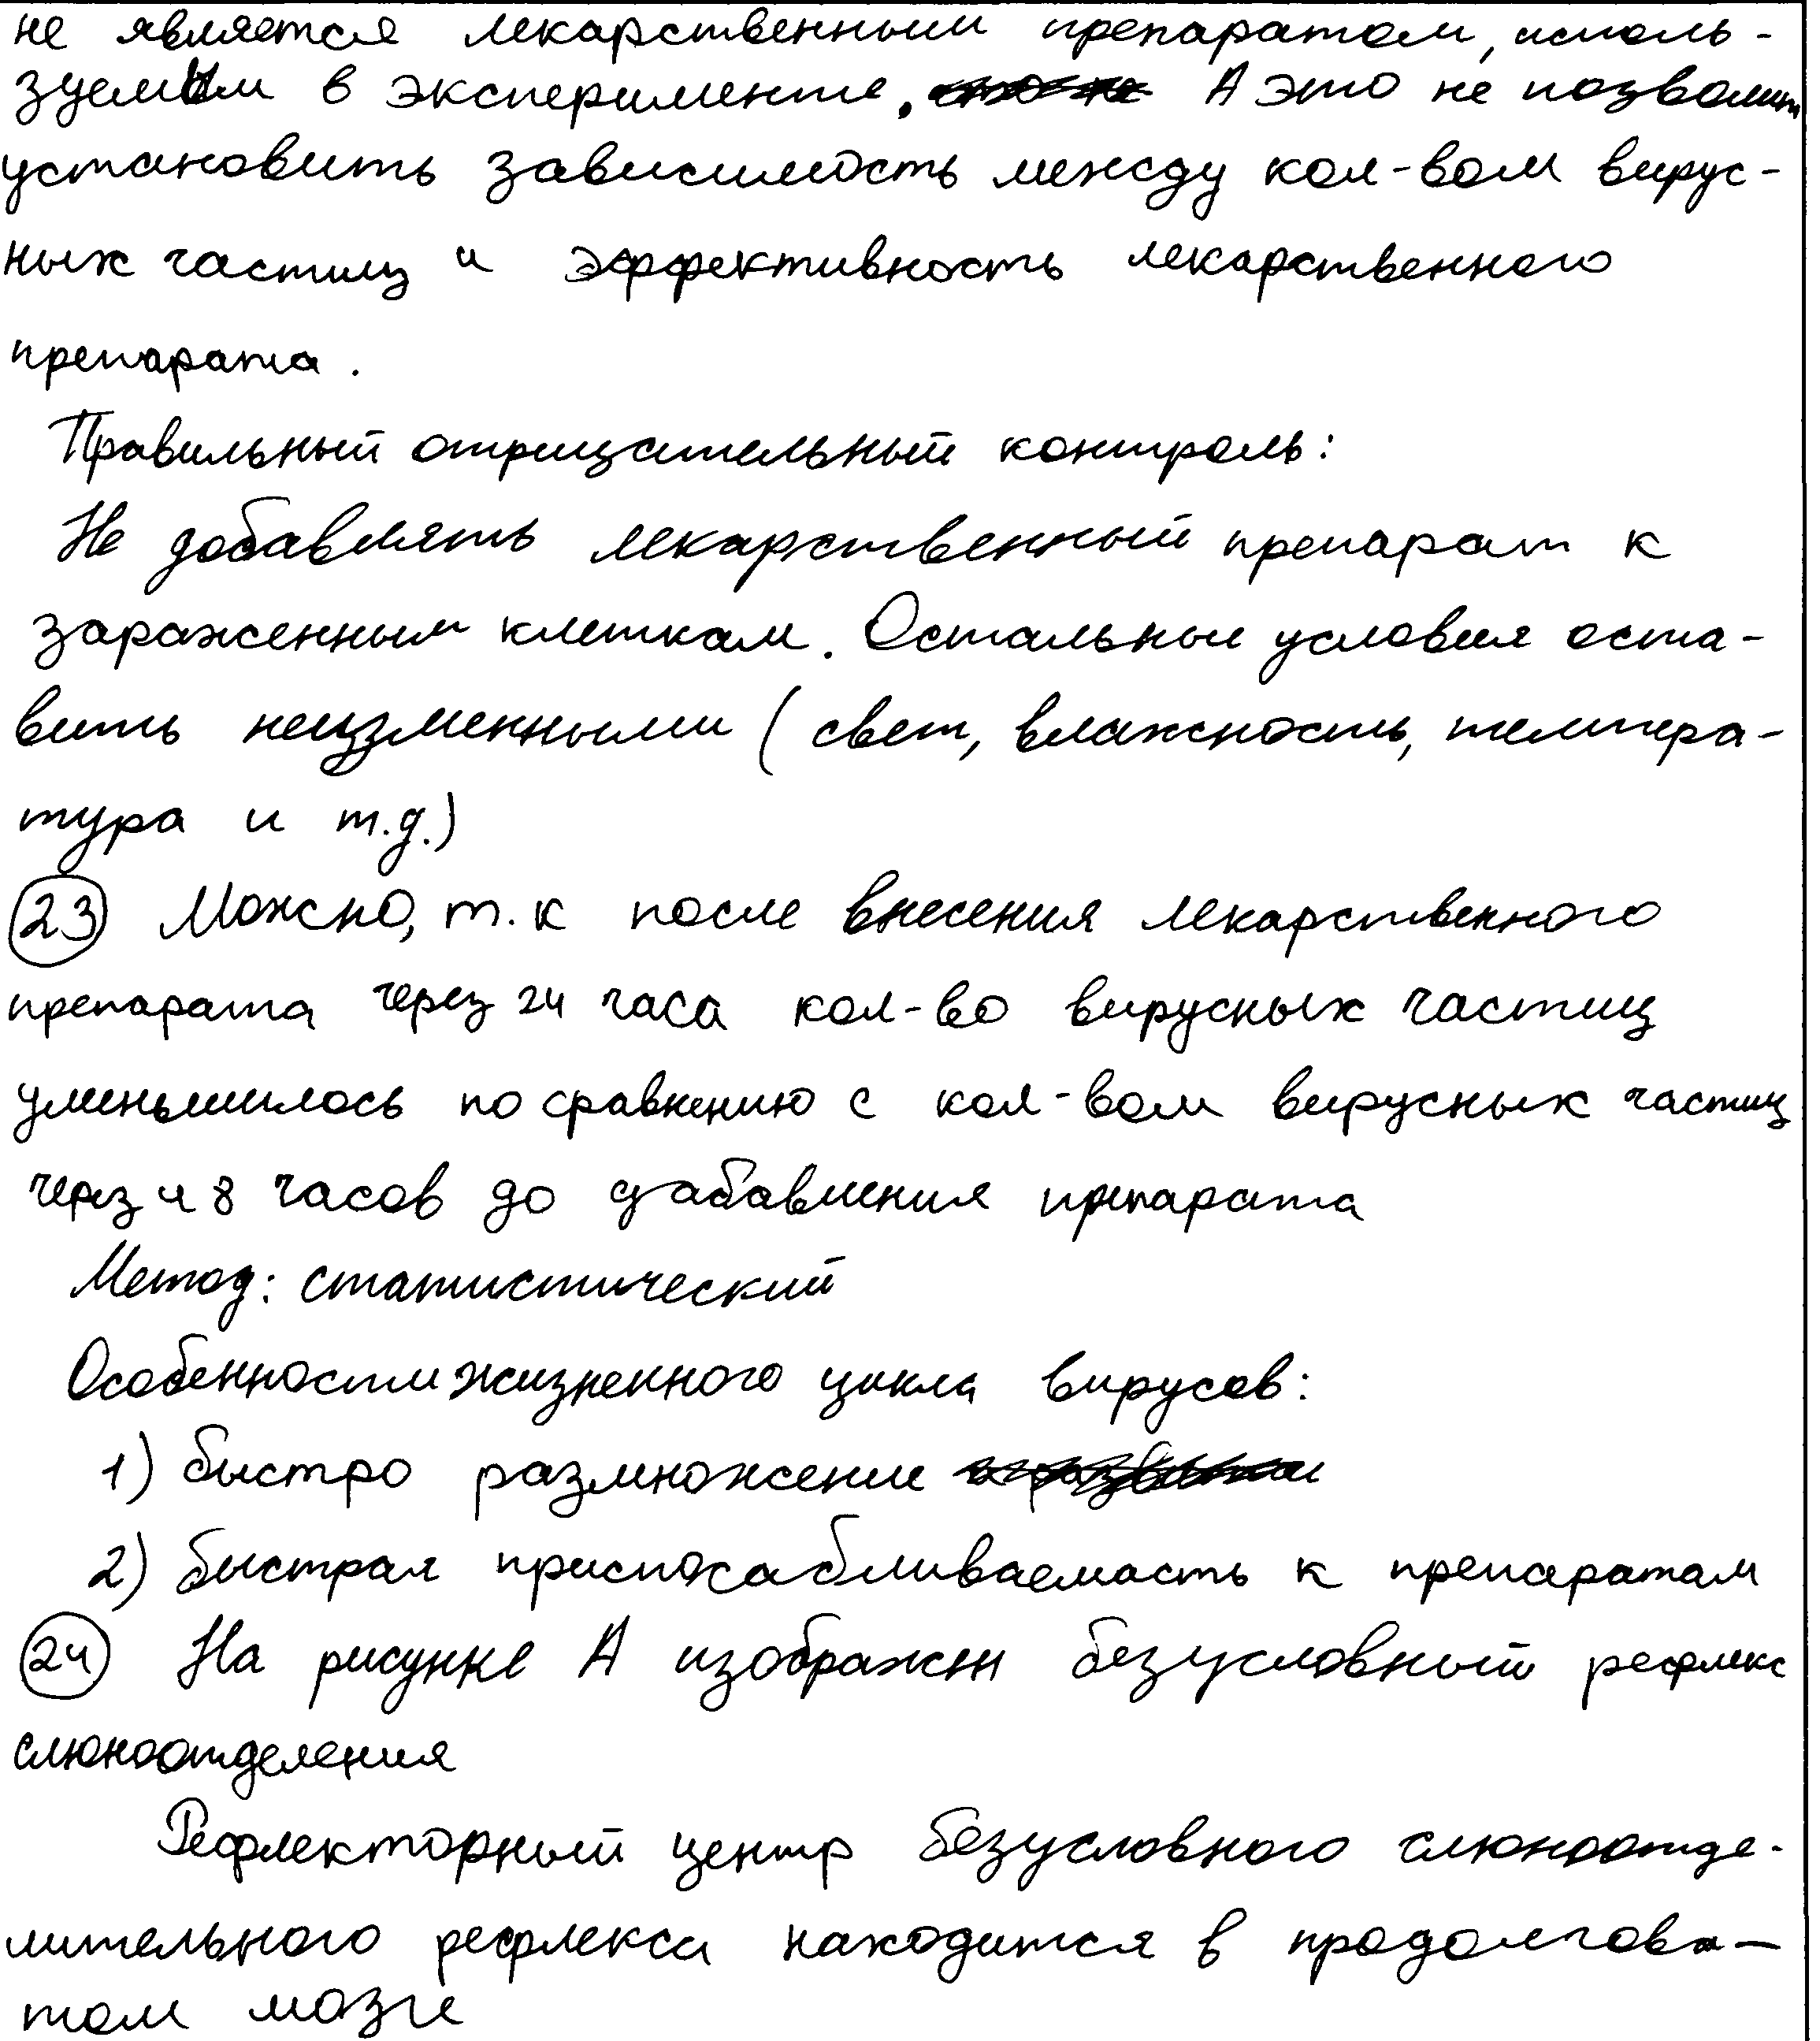 не является лекарственным препаратом, исполь-
зуемым в эксперименте. А это не позволит
установить зависимость между кол-вом вирус-
ных частиц и эффективность лекарственного
препарата.
Правильный отрицательный контроль:
Не добавлять лекарственный препарат к
зараженным клеткам. Остальные условия оста-
вить неизменными (свет, влажность, темпера-
тура и т.д.)
23 Можно, т.к после внесения лекарственного
препарата через 24 часа кол-во вирусных частиц
уменьшилось по сравнению с кол-вом вирусных частиц
через 48 часов до дабавления препарата
Метод: статистический
Особенности жизненного цикла вирусов:
1) быстро размножение
2) быстрая приспосабливаемость к препаратам
24 На рисунке А изображен безусловный рефлекс
слюноотделения
Рефлекторный центр безусловного слюноотде-
лительного рефлекса находится в продолгова-
том мозге